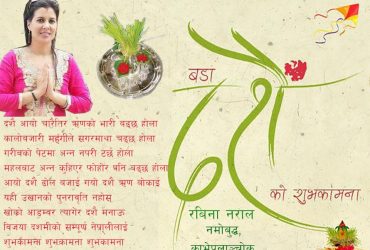 दशैं आयो चारैतिर ऋणको भारी बढ्छ होला
कालोबजारी महंगीले सगरमाथा चढ्छ होला
गरीवको पेटमा अन्न नपरी टर्छ होला
महलबाट अन्न कुहिएर फोहोर पनि बढ्छ होला
आयो दशैं ढोल बजाई गयो दशैं ऋण बोकाई
यही उखानको पुनरावृति नहोस्
खोको आडम्बर त्यागेर दशैं मनाऊ
बिजया दशमीको सम्पूर्ण नेपालीलाई
शुभकामना शुभकामना शुभकामना
बडा
दशैं
को शुभकामना
रबिना नराल
नमोबुद्ध,
काभ्रेपलाञ्चोक